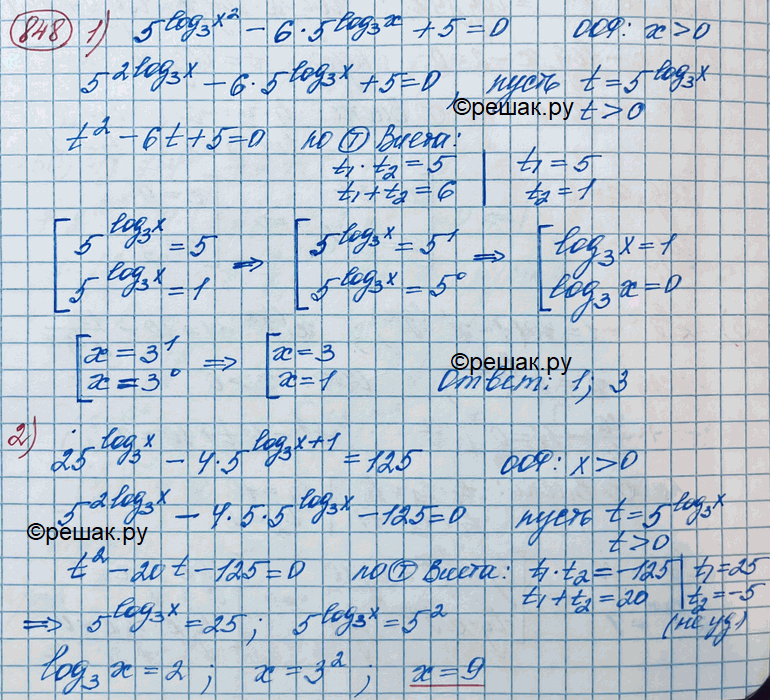 848 1) 5^(log₃x²) − 6·5^(log₃x) + 5 = 0 ООФ: x > 0
5^(2log₃x) − 6·5^(log₃x) + 5 = 0, пусть t = 5^(log₃x)
©решак.ру t > 0
t² − 6t + 5 = 0 по Ⓣ Виета:
t₁·t₂ = 5 | t₁ = 5
t₁ + t₂ = 6 | t₂ = 1
[ 5^(log₃x) = 5 ⇒ [ 5^(log₃x) = 5¹ ⇒ [ log₃x = 1
5^(log₃x) = 1 5^(log₃x) = 5⁰ log₃x = 0
[ x = 3¹ ⇒ [ x = 3 ©решак.ру
x = 3⁰ x = 1 Ответ: 1; 3
2) 25^(log₃x) − 4·5^(log₃x+1) = 125 ООФ: x > 0
5^(2log₃x) − 4·5·5^(log₃x) − 125 = 0 пусть t = 5^(log₃x)
©решак.ру t > 0
t² − 20t − 125 = 0 по Ⓣ Виета: t₁·t₂ = −125 | t₁ = 25
t₁ + t₂ = 20 | t₂ = −5
⇒ 5^(log₃x) = 25; 5^(log₃x) = 5² (не уд)
log₃x = 2; x = 3²; x = 9